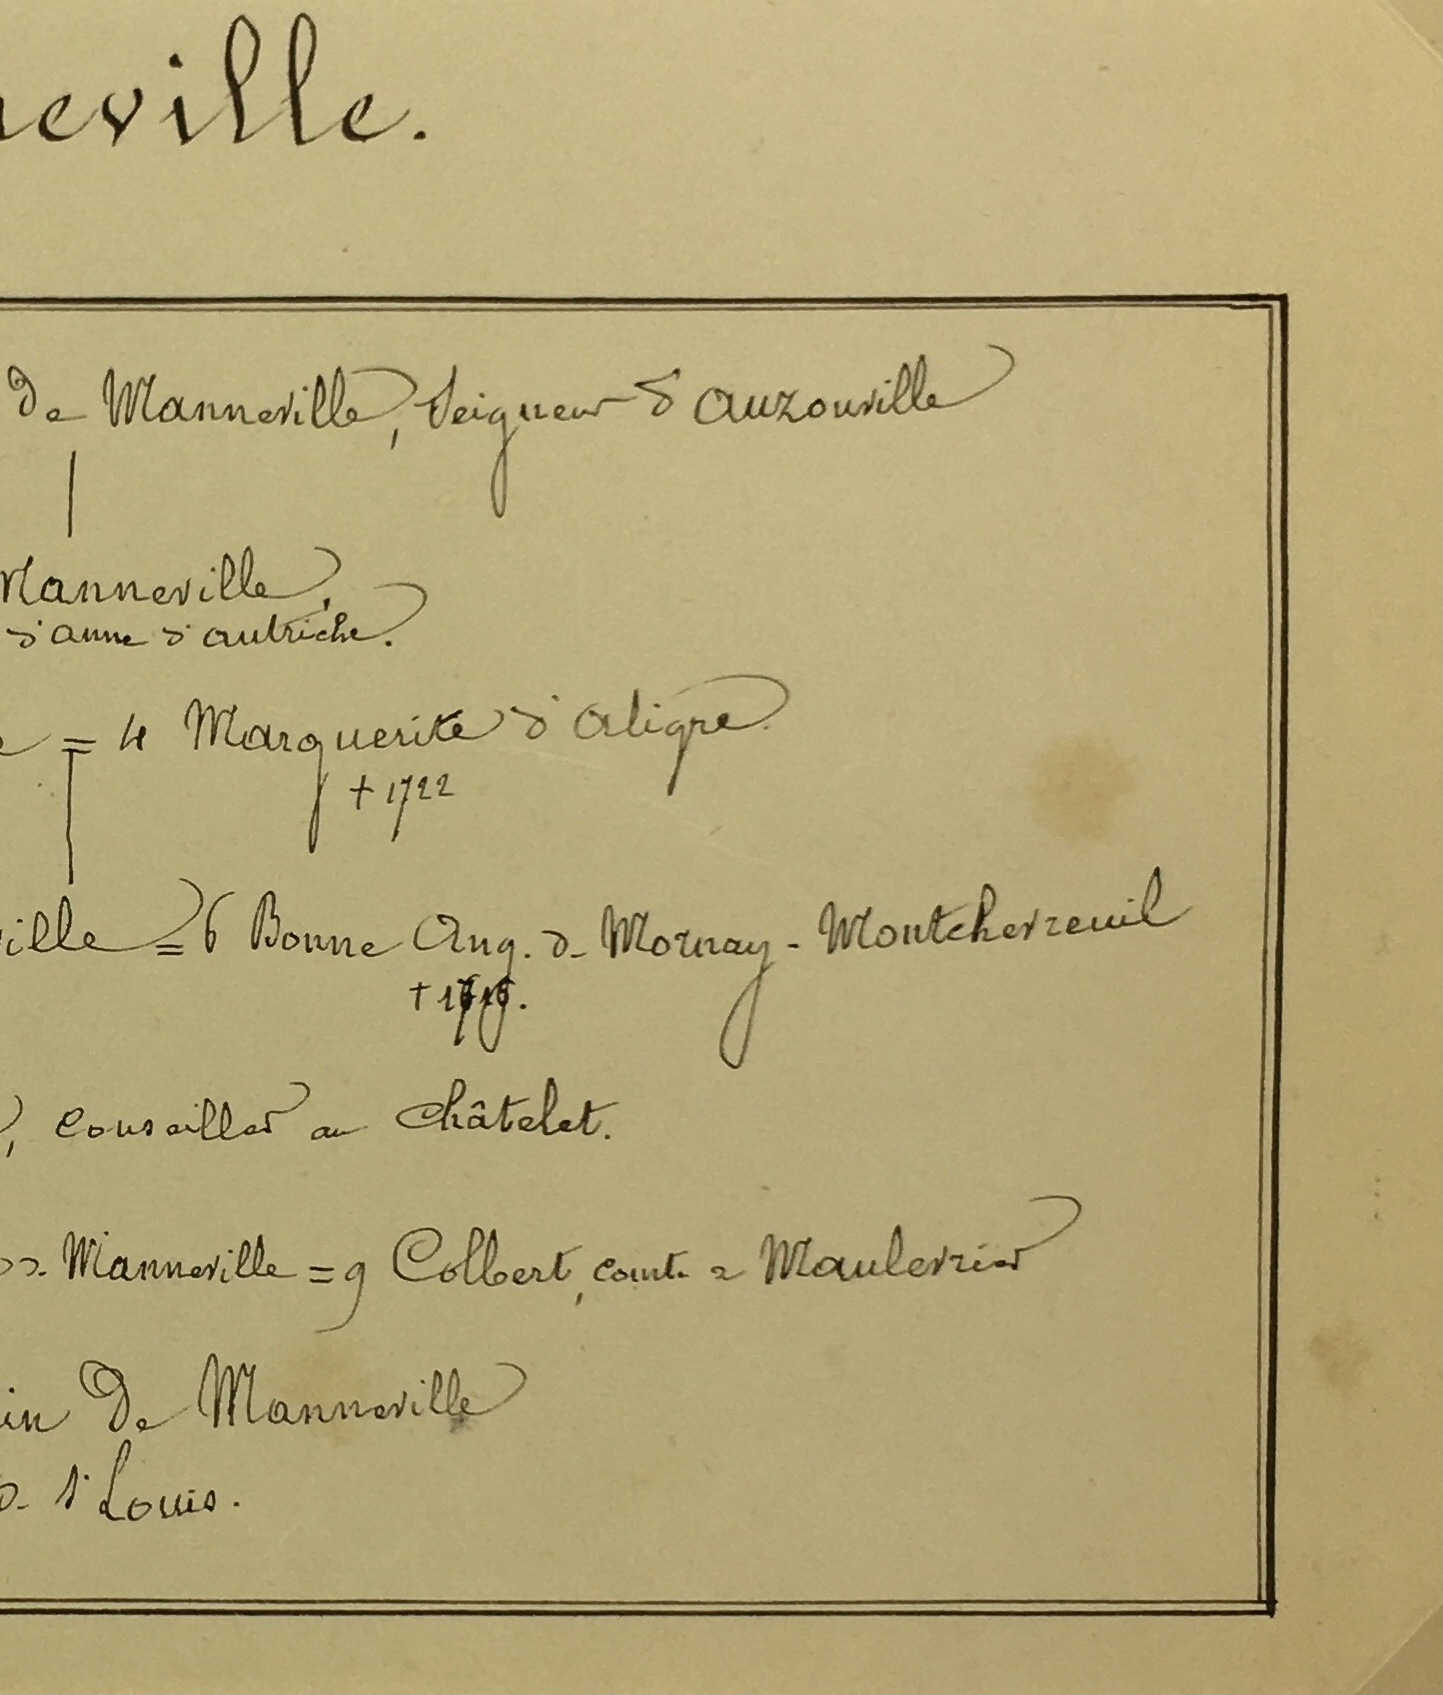 neville.
de Manneville, Seigneur d'auzouville
Manneville,
d'anne d'autriche.
e = 4 Marguerite d'aligre.
+ 1722
ville = 6 Bonne Ang. de Mornay - Montcherreuil
, conseiller au châtelet.
de Manneville = 9 Colbert, comte de Maulevrier
in De Manneville
de St Louis.